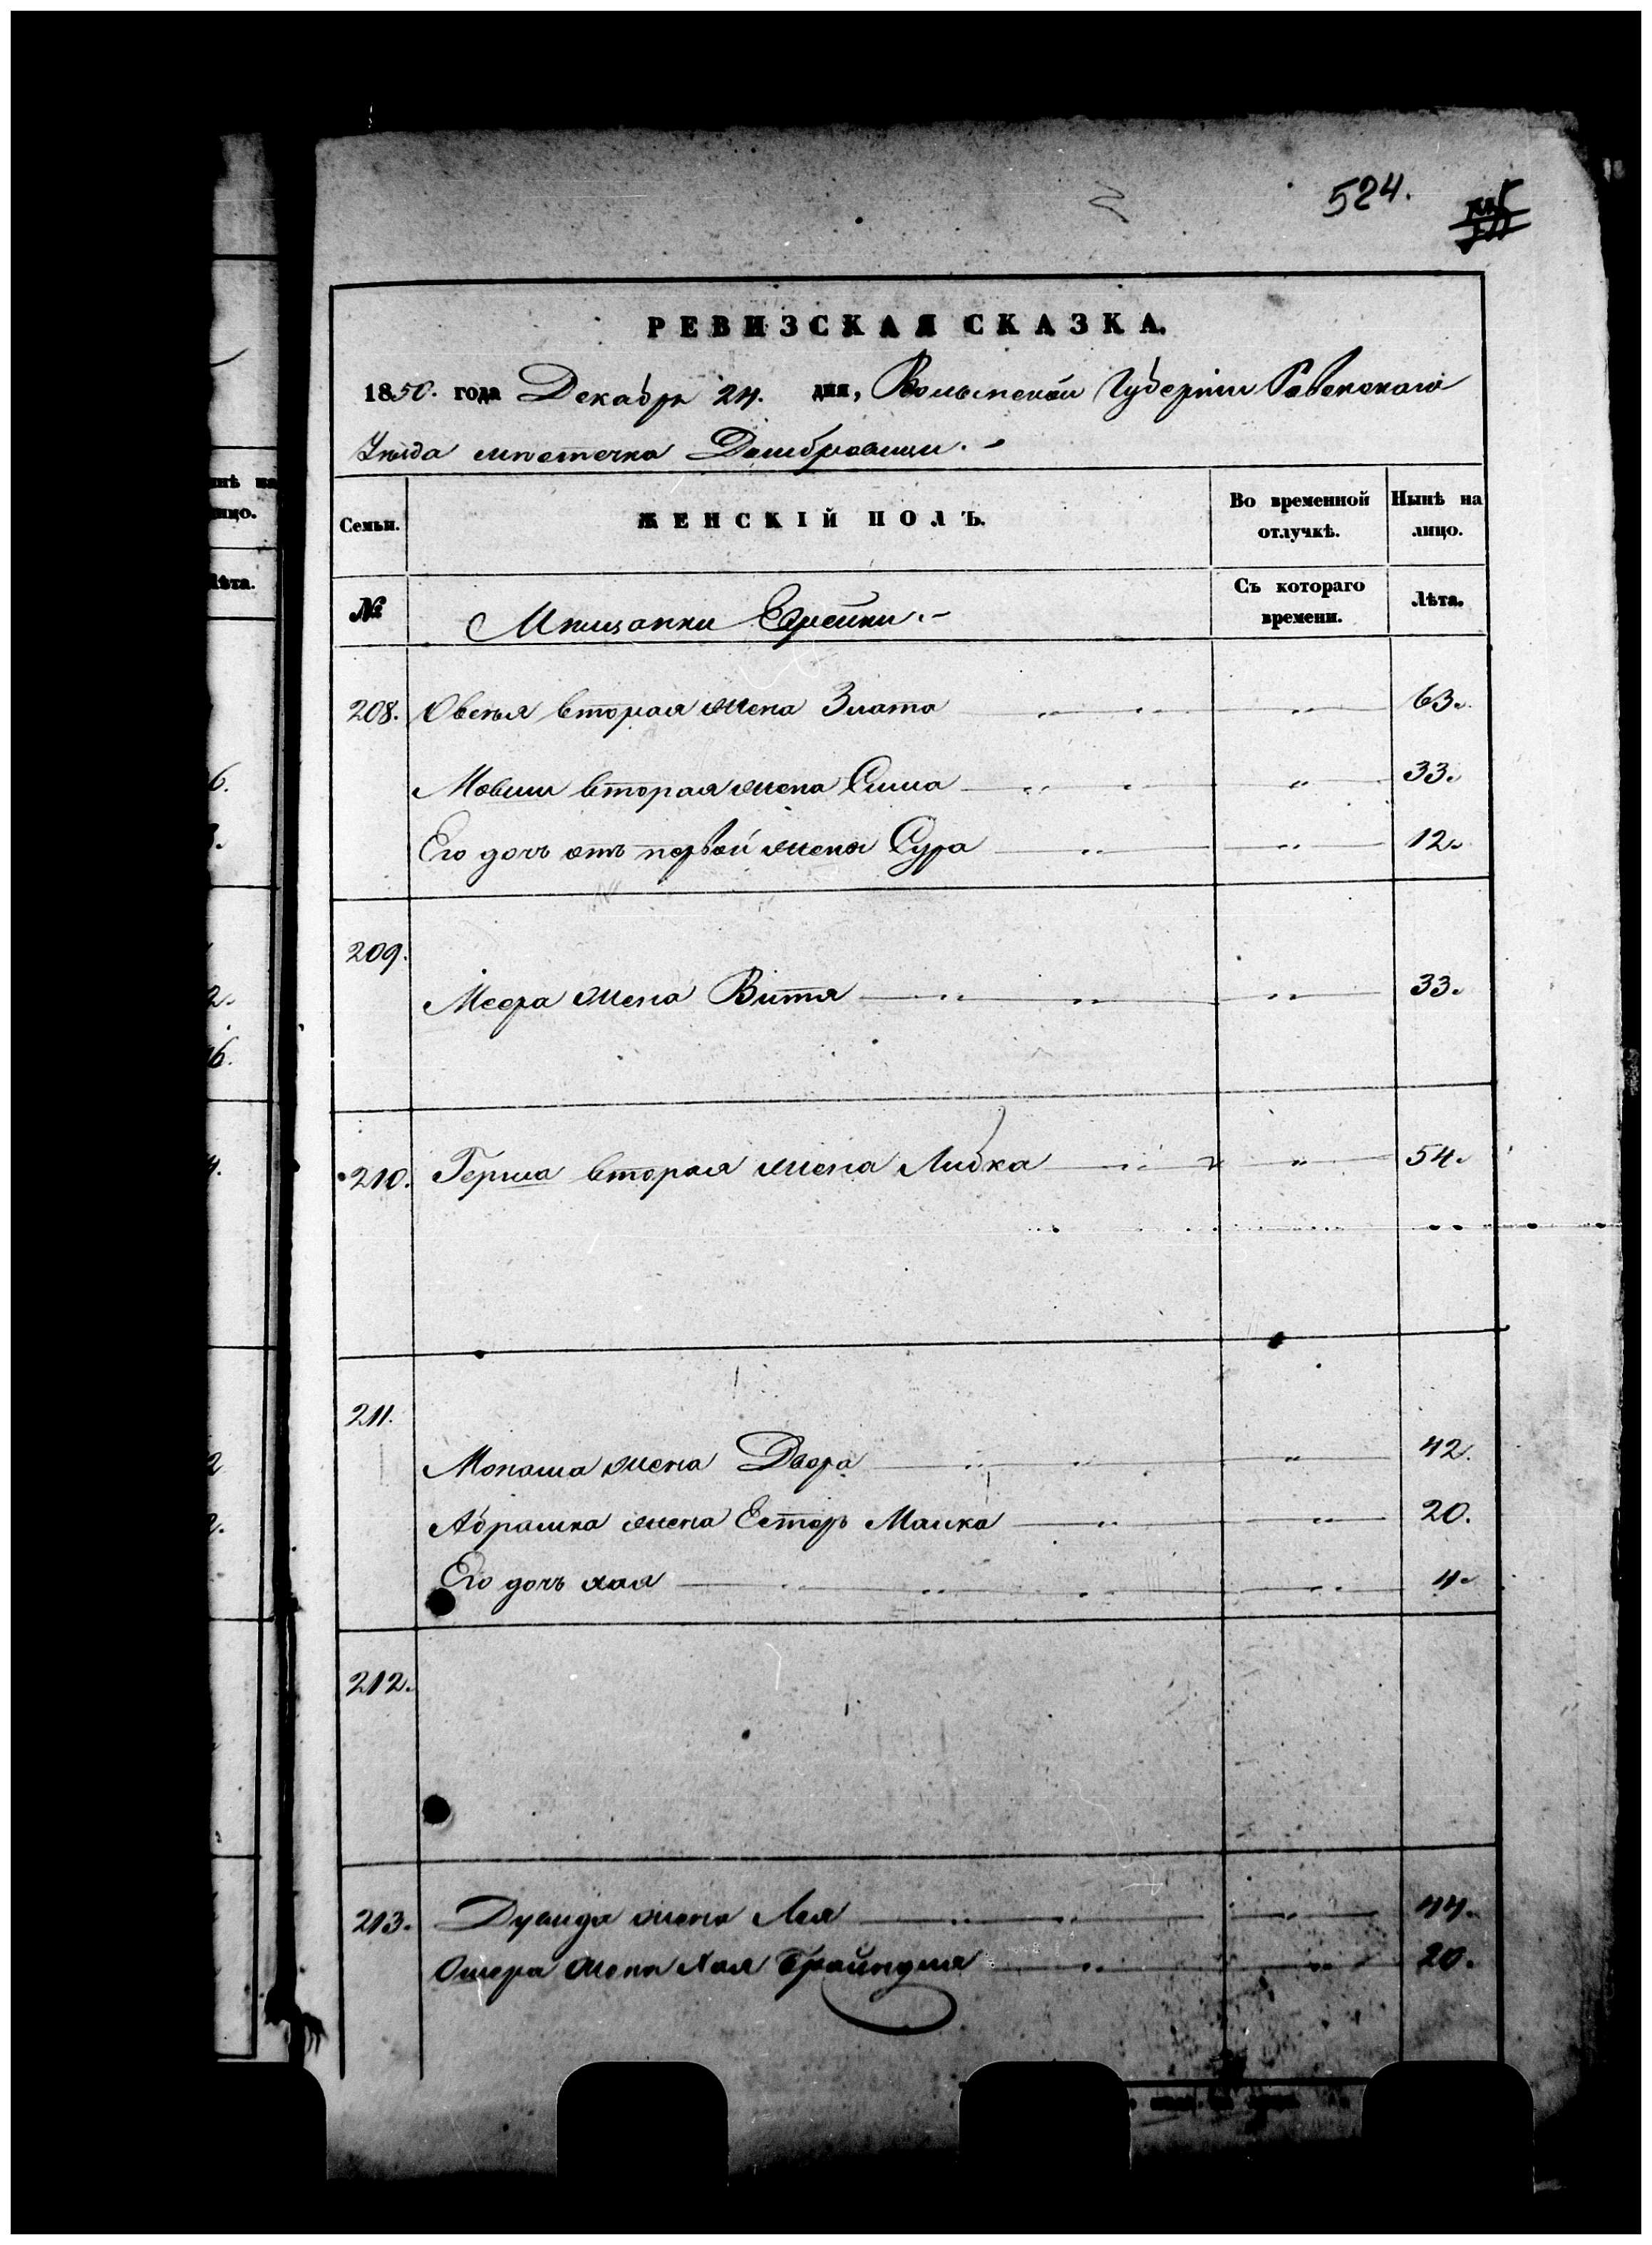 524.
РЕВИЗСКАЯ СКАЗКА.
1850. года Декабря 24. дня, Волынской Губерніи Ровенского
Уѣзда мѣстечка Домбровици.
Семьи.
ЖЕНСКІЙ ПОЛЪ.
Во временной отлучкѣ.
Нынѣ на лицо.
№
Мѣщанки Еврейки.
Съ котораго времени.
Лѣта.
208. Овсея вторая жена Злата " " " 63.
Мовши вторая жена Сима " " " 33.
Его дочь отъ первой жены Сура " " 12.
209.
Меера жена Витя " " " 33.
210. Герша вторая жена Либка " " " 54.
211.
Монаша жена Двора " " " 42.
Абрамка жена Естеръ Малка " " 20.
Его дочь хая " " " " 4.
212.
213. Дувида жена Лея " " " 44.
Ошера жена Хая Брайндля " " 20.
нѣ на
ицо.
Лѣта.
6.
2.
16.
4.
2
2.